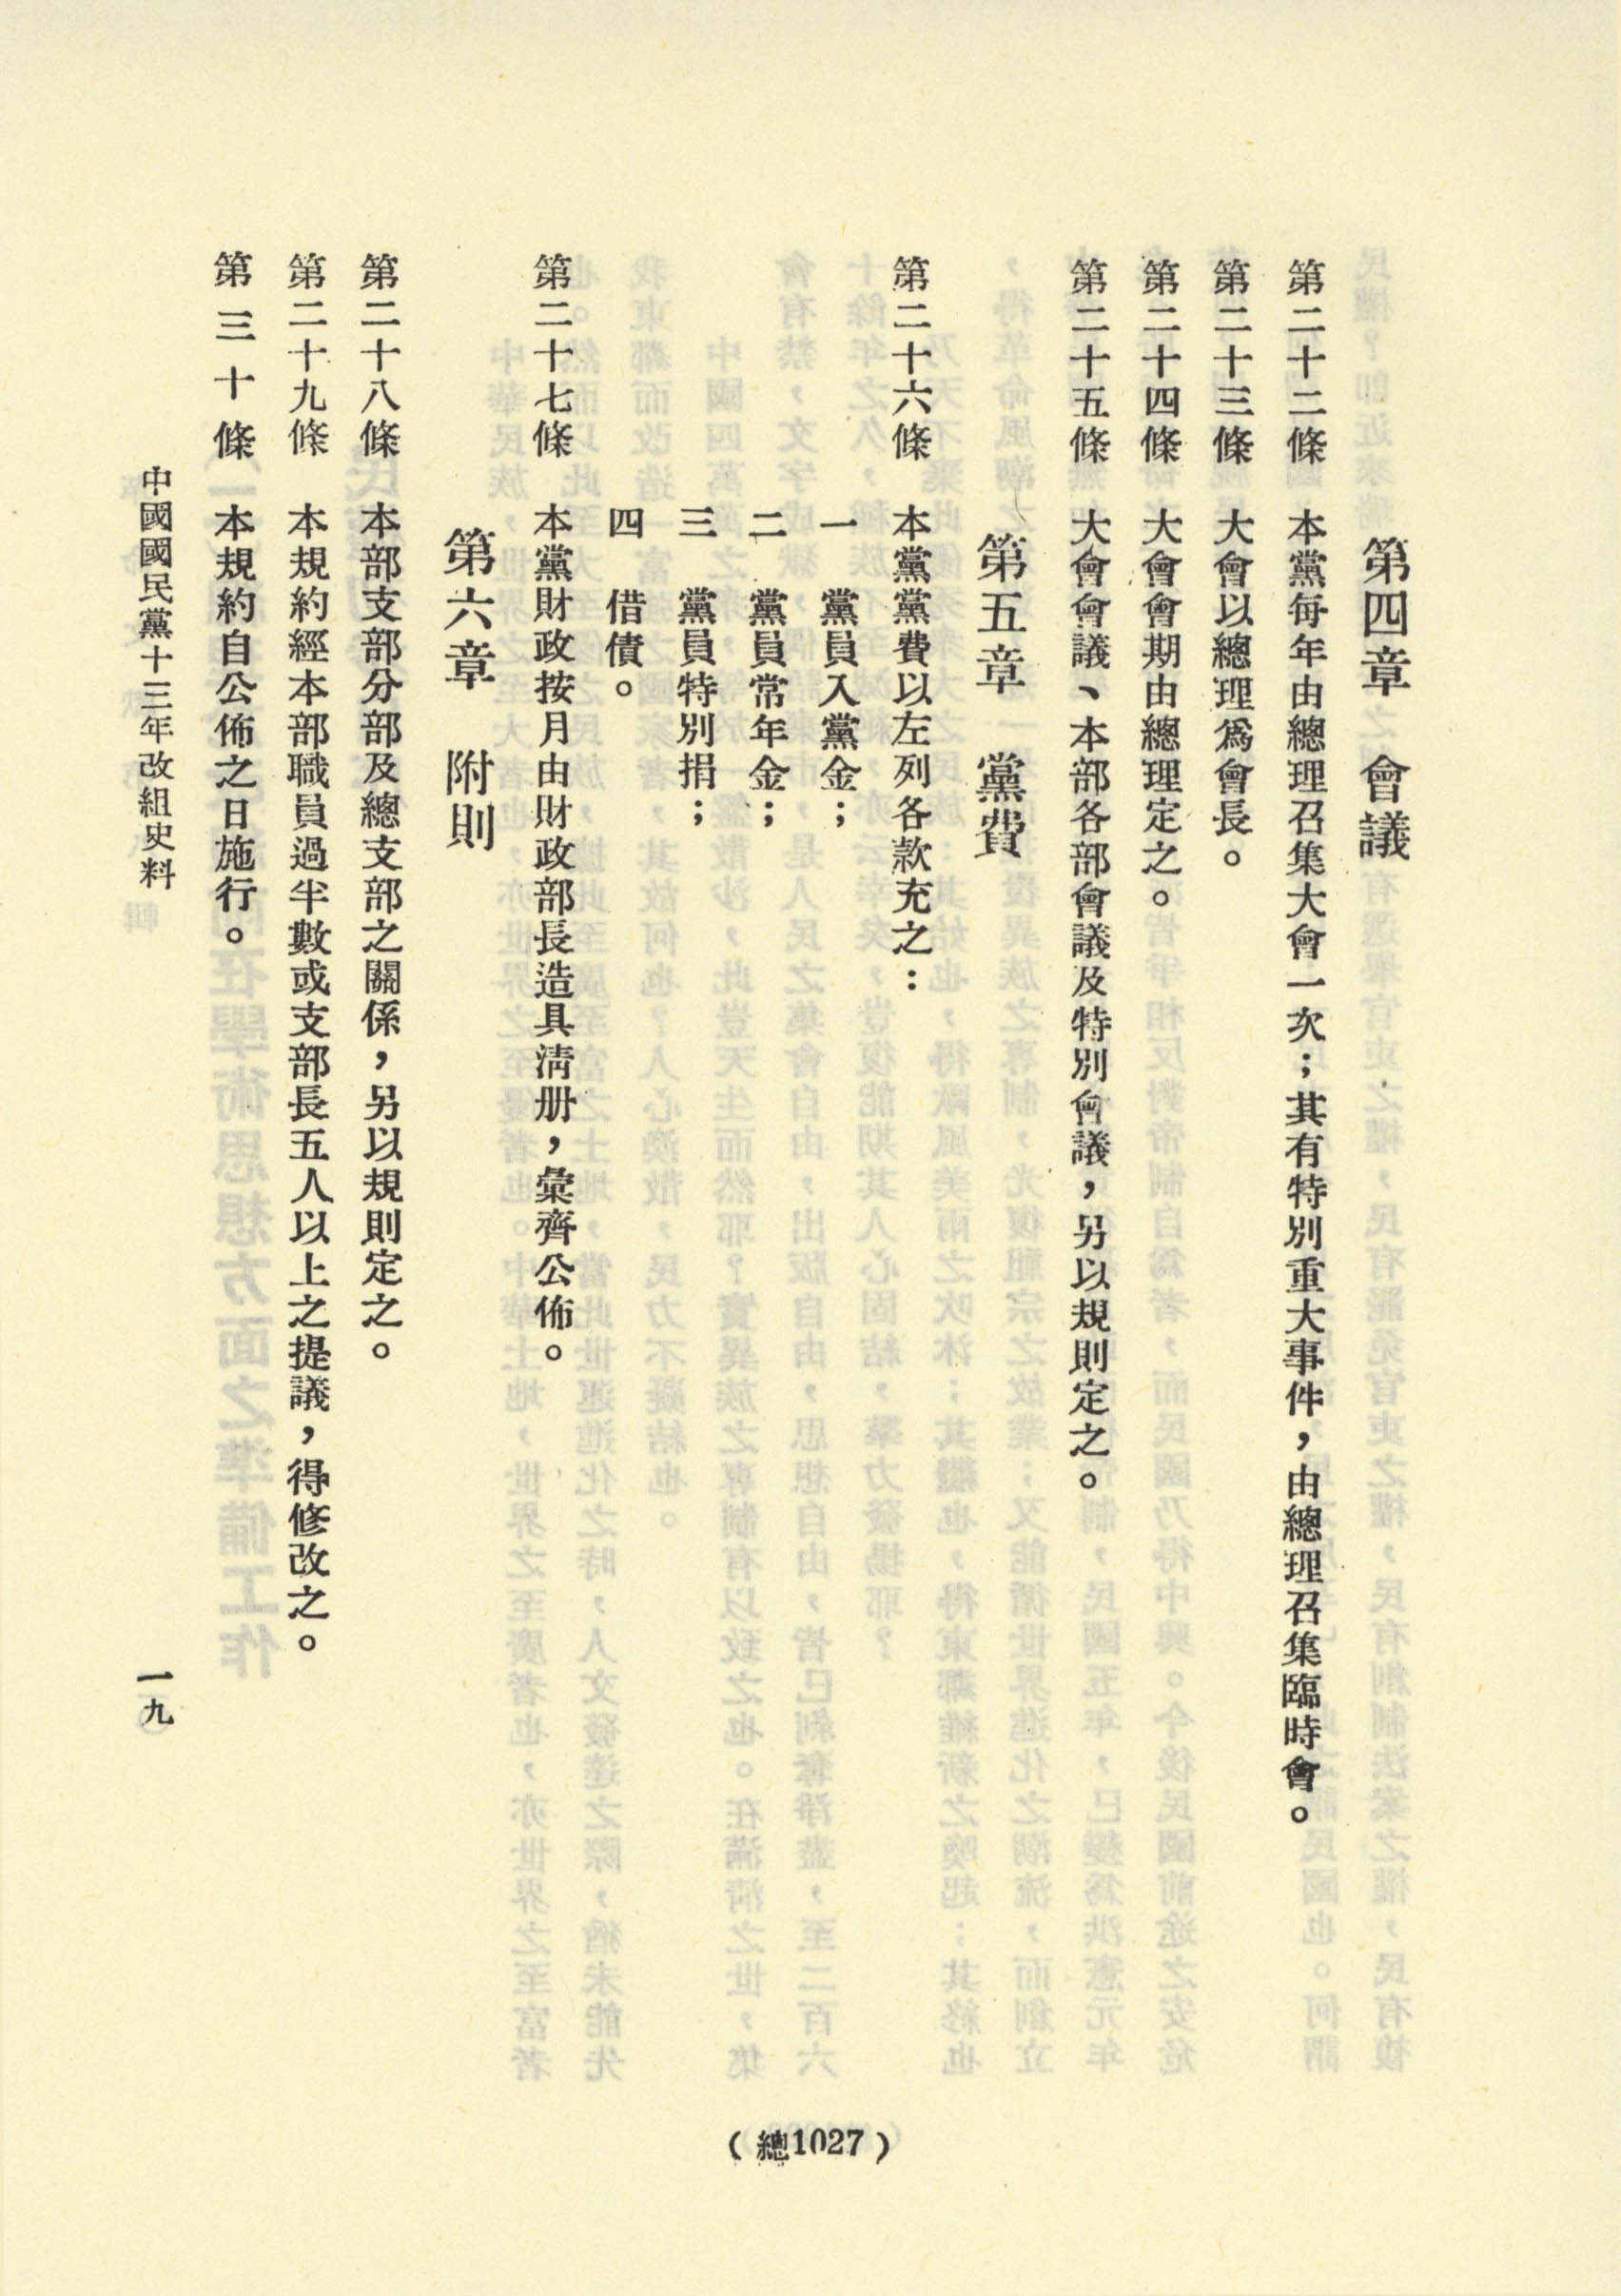 第四章　會議
第二十二條　本黨每年由總理召集大會一次；其有特別重大事件，由總理召集臨時會。
第二十三條　大會以總理爲會長。
第二十四條　大會會期由總理定之。
第二十五條　大會會議、本部各部會議及特別會議，另以規則定之。
第五章　黨費
第二十六條　本黨黨費以左列各款充之：
一　黨員入黨金；
二　黨員常年金；
三　黨員特別捐；
四　借債。
第二十七條　本黨財政按月由財政部長造具淸册，彙齊公佈。
第六章　附則
第二十八條　本部支部分部及總支部之關係，另以規則定之。
第二十九條　本規約經本部職員過半數或支部長五人以上之提議，得修改之。
第三十條　本規約自公佈之日施行。
中國國民黨十三年改組史料
一九
（總1027）